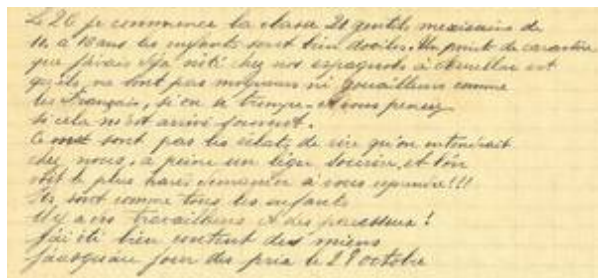 Le 26 je commence la classe 21 gentils mexicains de
10 à 18 ans les enfants sont bien dociles. Un point de caractère
que j'avais déjà noté chez nos espagnols à est
qu'ils ne sont pas moqueurs ni gouailleurs comme
les Français, si on se trompe et vous pensez
si cela m'est arrivé souvent.
Ce sont pas les éclats de rire qu'on entendrait
chez nous, à peine un léger sourire, et l'on
voit le plus à vous reprendre!!!
Ils sont comme tous les enfants
il y a des travailleurs et des paresseux!
J'ai été bien content des miens
jusqu'au jour des prix le 28 octobre